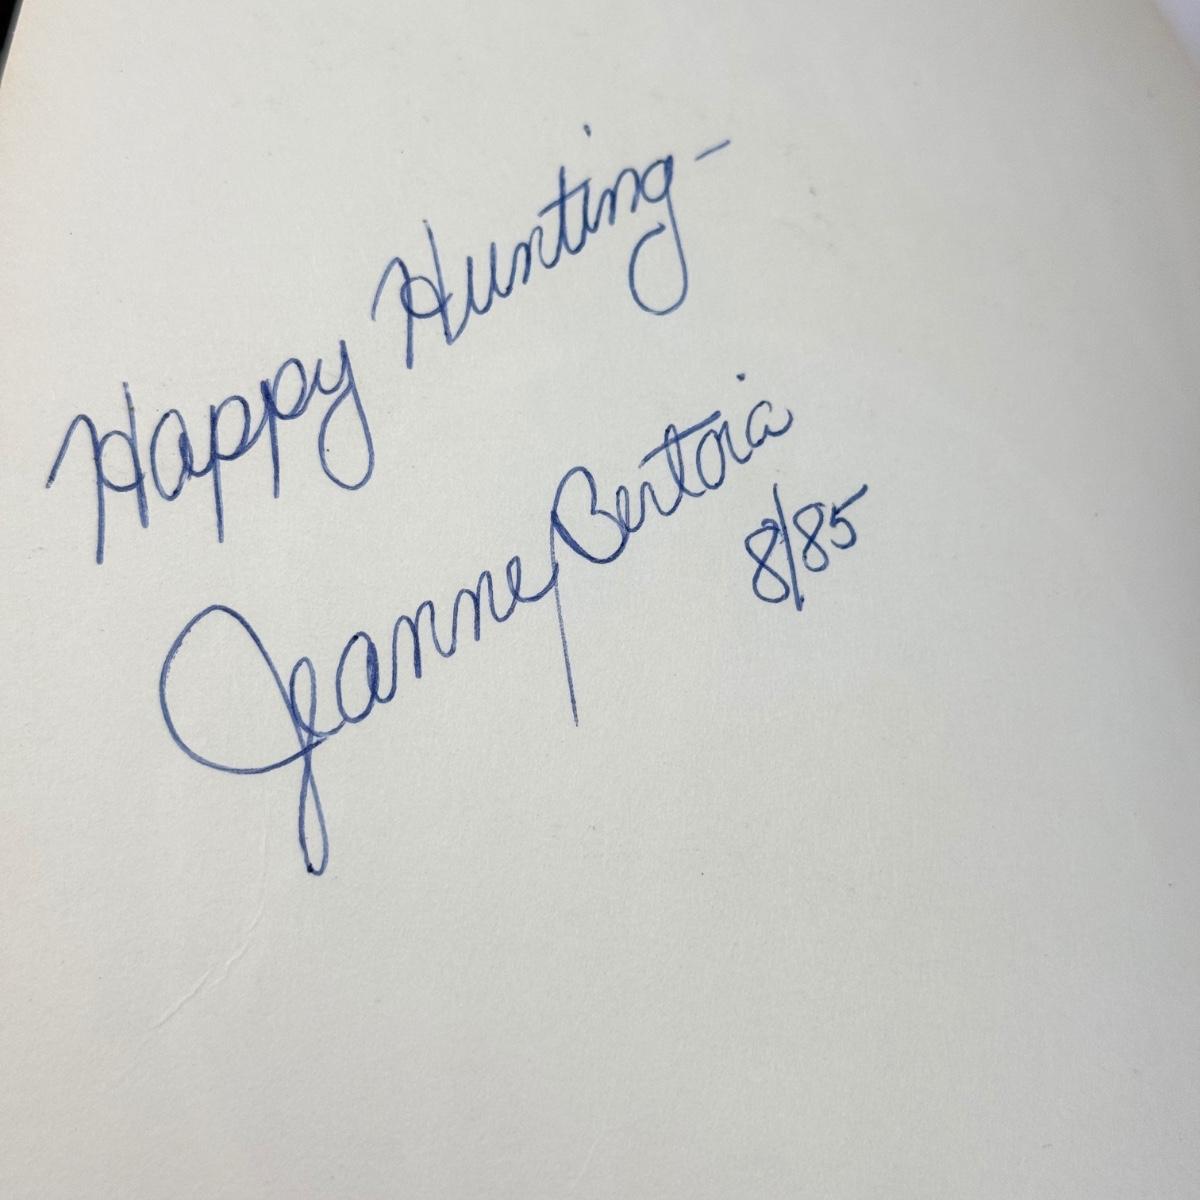 Happy Hunting-
Jeanne Bertoia
8/85